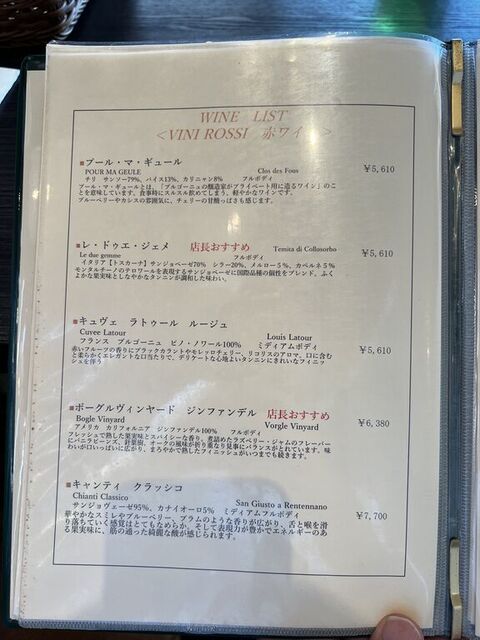 WINE LIST
＜VINI ROSSI 赤ワイ ＞
■プール・マ・ギュール
POUR MA GEULE Clos des Fous ￥5,610
チリ サンソー79%、パイス13%、カリニャン8% フルボディ
プール・マ・ギュールとは、「ブルゴーニュの醸造家がプライベート用に造るワイン」のこ
とを意味しています。食事時にスルスル飲めてしまう、軽やかなワインです。
ブルーベリーやカシスの雰囲気に、チェリーの甘酸っぱさも感じます。
■レ・ドゥエ・ジェメ 店長おすすめ Temita di Collosorbo ￥5,610
Le due gemme フルボディ
イタリア【トスカーナ】サンジョベーゼ70% シラー20%、メルロー5%、カベルネ5%
モンタルチーノのテロワールを表現するサンジョベーゼに国際品種の個性をブレンド。ふく
よかな果実味としなやかなタンニンが調和した味わい。
■キュヴェ ラトゥール ルージュ
Cuvee Latour Louis Latour ￥5,610
フランス ブルゴーニュ ピノ・ノワール100% ミディアムボディ
赤いフルーツの香りにブラックカラントやモレッロチェリー、リコリスのアロマ。口に含む
と柔らかくエレガントな口当たりで、デリケートな心地よいタンニンにきれいなフィニッ
シュを伴う
■ボーグルヴィンヤード ジンファンデル 店長おすすめ
Bogle Vinyard Vorgle Vinyard ￥6,380
アメリカ カリフォルニア ジンファンデル100% フルボディ
フレッシュで熟した果実味とスパイシーな香り。煮詰めたラズベリー・ジャムのフレーバー
にバニラビーンズ、針葉樹、オークの風味が折り重なり見事にバランスがとれています。味
わいが口いっぱいに広がり、まろやかで熟したフィニッシュがいつまでも続きます。
■キャンティ クラッシコ
Chianti Classico San Giusto a Rentennano ￥7,700
サンジョヴェーゼ95%、カナイオーロ5% ミディアムフルボディ
華やかなスミレやブルーベリー、プラムのような香りが広がり、舌と喉を滑
り落ちていく感覚はとてもなめらか。そして表現力が豊かでエネルギーのあ
る果実味に、筋の通った綺麗な酸が感じられます。